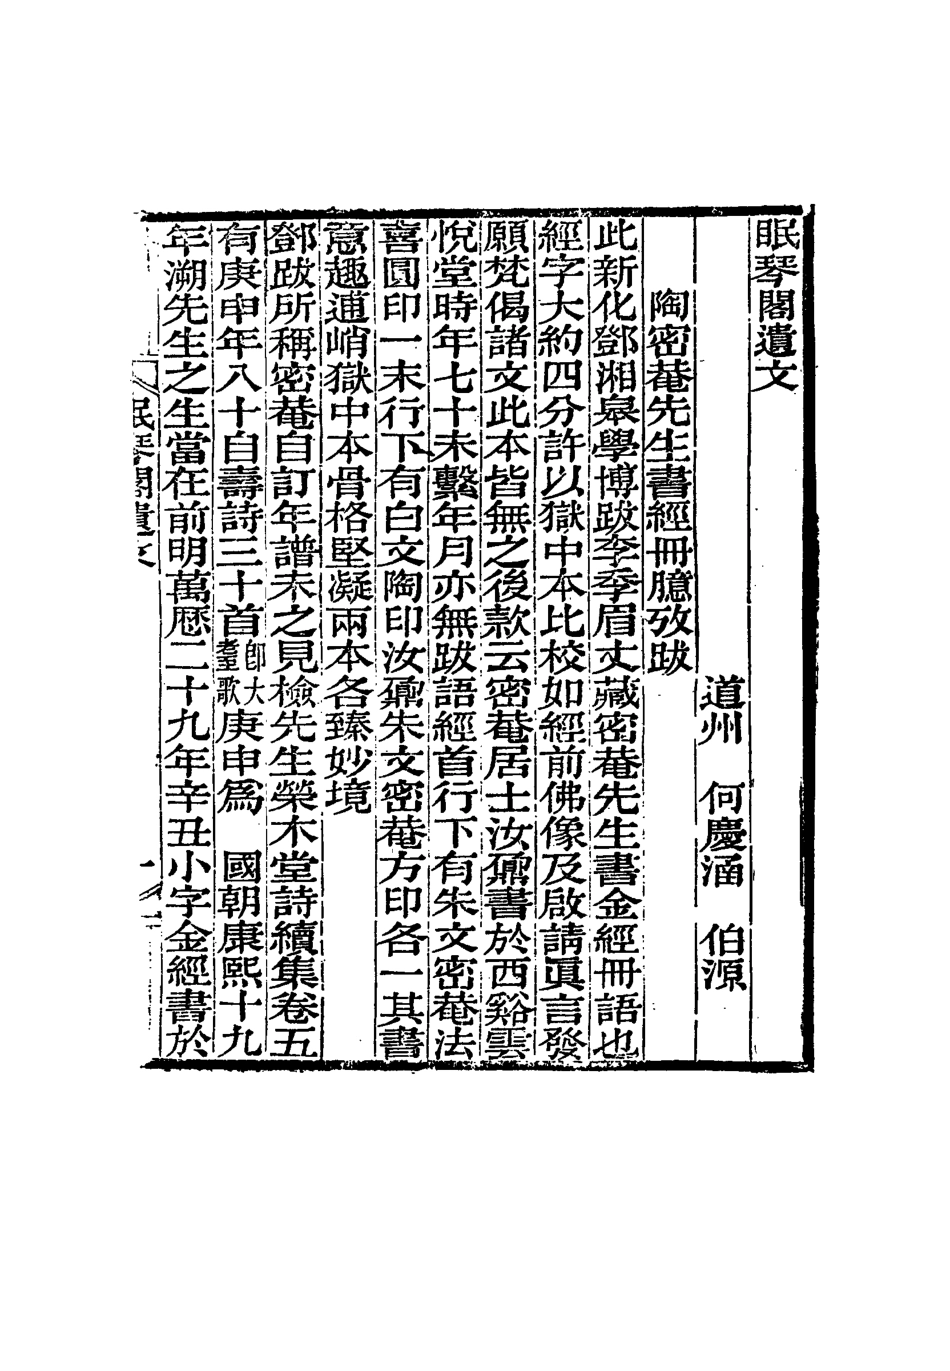 眠琴閣遺文
道州　何慶涵　伯源
陶密菴先生書經冊臆攷跋
此新化鄧湘皋學博跋李季眉丈藏密菴先生書金經冊語也
經字大約四分許以獄中本比校如經前佛像及啟請眞言發
願梵偈諸文此本皆無之後款云密菴居士汝鼐書於西谿雲
悅堂時年七十未繫年月亦無跋語經首行下有朱文密菴法
喜圓印一末行下有白文陶印汝鼐朱文密菴方印各一其書
意趣逋峭獄中本骨格堅凝兩本各臻妙境
鄧跋所稱密菴自訂年譜未之見檢先生榮木堂詩續集卷五
有庚申年八十自壽詩三十首卽大耋歌庚申爲　國朝康熙十九
年溯先生之生當在前明萬厯二十九年辛丑小字金經書於
眠琴閣遺文
一